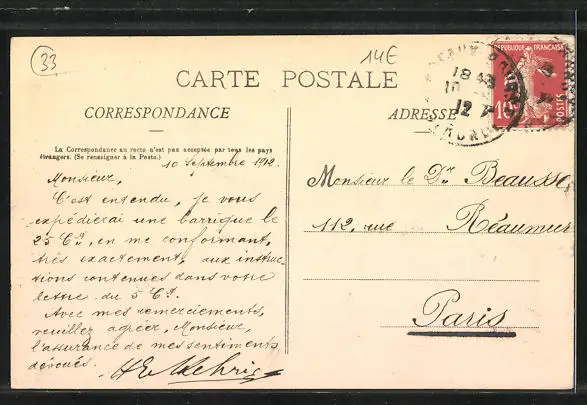 33
14E
CARTE POSTALE
CORRESPONDANCE
ADRESSE
La Correspondance au recto n'est pas acceptée par tous les pays
étrangers. (Se renseigner à la Poste.)
10 Septembre 1912.
Monsieur,
C'est entendu, je vous
expédierai une barrique le
25 Ct., en me conformant,
très exactement, aux instruc-
tions contenues dans votre
lettre du 5 Ct.
Avec mes remerciements,
veuillez agréer, Monsieur,
l'assurance de mes sentiments
dévoués.
Monsieur le Dr. Beausse
112, rue Réaumur
Paris
REPUBLIQUE FRANÇAISE
10
POSTES
BORDEAUX
GIRONDE
18 43
10
12